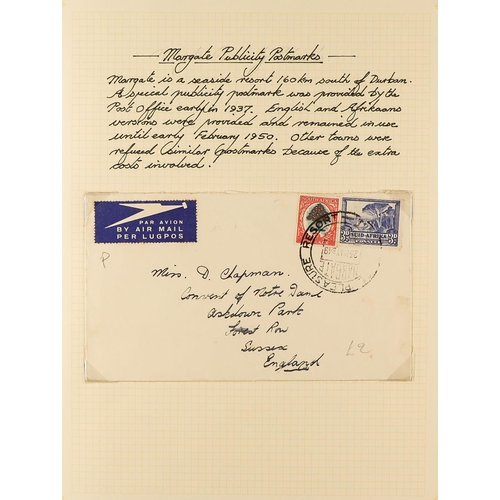 Margate Publicity Postmarks
Margate is a seaside resort 160km south of Durban.
A special publicity postmark was provided by the
Post Office early in 1937. English and Afrikaans
versions were provided and remained in use
until early February 1950. Other towns were
refused similar postmarks because of the extra
costs involved.
PAR AVION
BY AIR MAIL
PER LUGPOS
SUID-AFRIKA
PLEASURE RESORT
MARGATE
P
Miss. D. Chapman.
Convent of Notre Dame
Ashdown Park
Forest Row
Sussex
England
£2